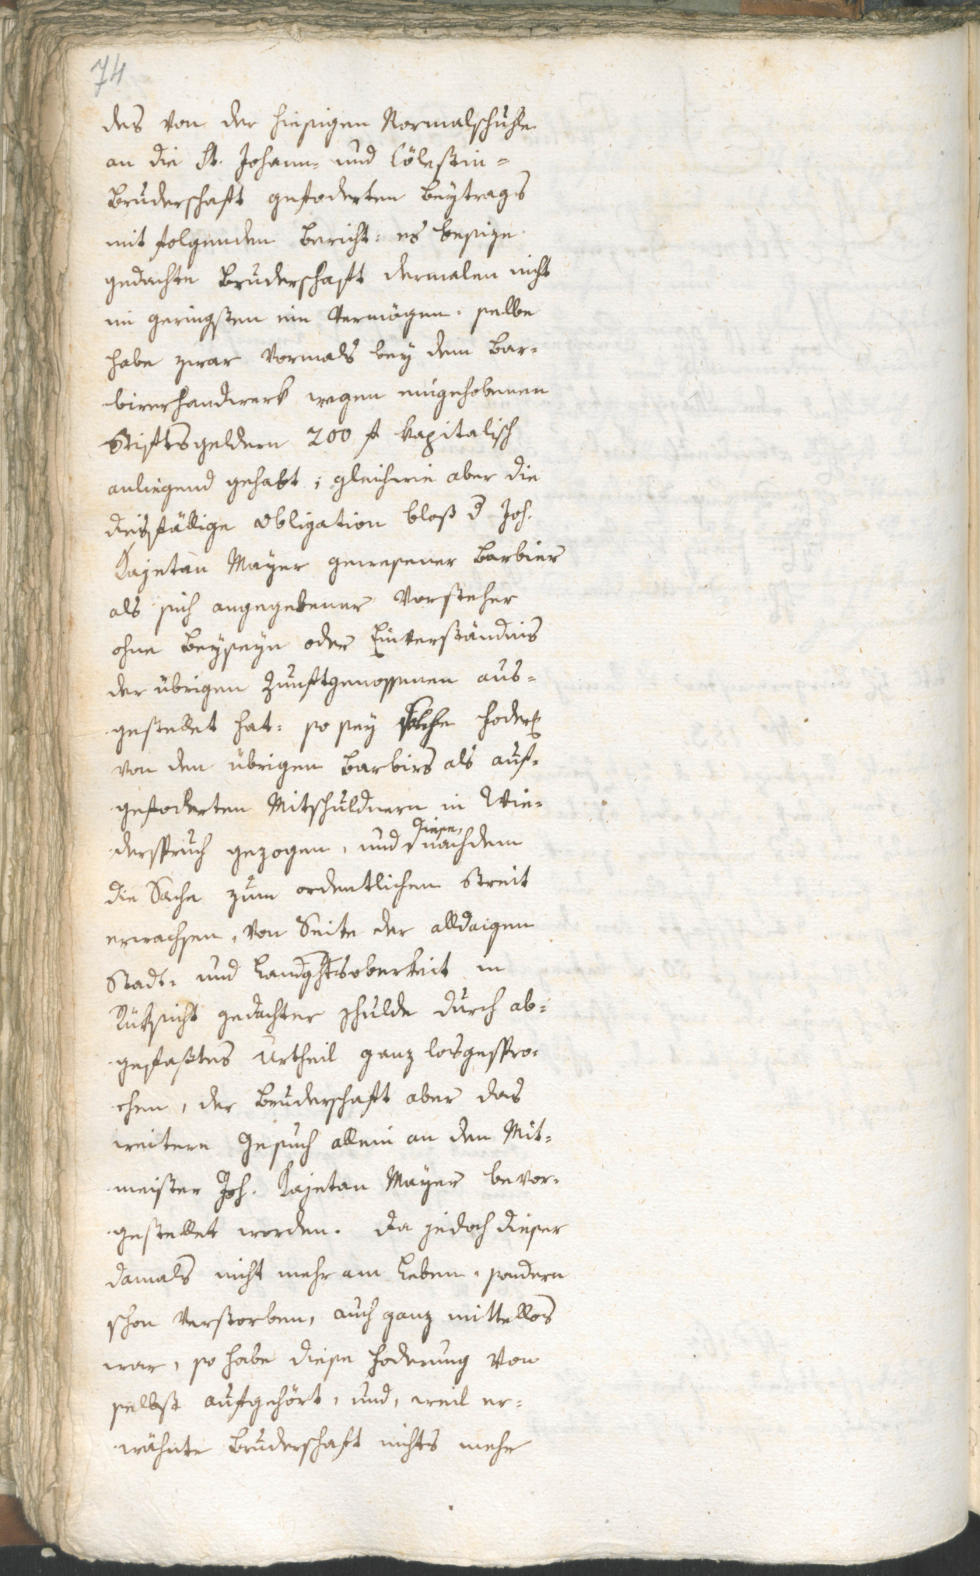 74
des von der hiesigen Normalschuhle
an die St. Johann- und Cölestin-
Bruderschaft gefoderten Beytrags
mit folgenden Bericht: es besize
gedachte Bruderschaft dermalen nicht
im geringsten ein Vermögen. selbe
habe zwar vormals bey dem Bar-
biererhandwerk wegen eingehobenen
Stiftsgeldern 200 f kapitalisch
anliegend gehabt; gleichwie aber die
diesfällige Obligation bloß d Joh.
Kajetan Mayer gewesener Barbier
als sich angegebener Vorsteher
ohne Beyseyn oder Einverständnis
der übrigen Zunftgenossenen aus-
gestellet hat: so sey solche Foder
von den übrigen Barbirs als auf-
gefoderten Mitschuldnern in Wie-
derspruch gezogen, und diese, nachdem
die Sache zum ordentlichen Streit
erwachsen, von Seite der alldaigen
Stadt- und Landghtsoberkeit in
Rüksicht gedachter Schulde durch ab-
gefaßtes Urtheil ganz losgespro-
chen, der Bruderschaft aber das
weitere Gesuch allein an den Mit-
meister Joh. Kajetan Mayer bevor-
gestellet worden. Da jedoch dieser
damals nicht mehr am Leben, sondern
schon verstorben, auch ganz mittellos
war, so habe diese Foderung von
selbst aufgehört, und, weil er-
wähnte Bruderschaft nichts mehr